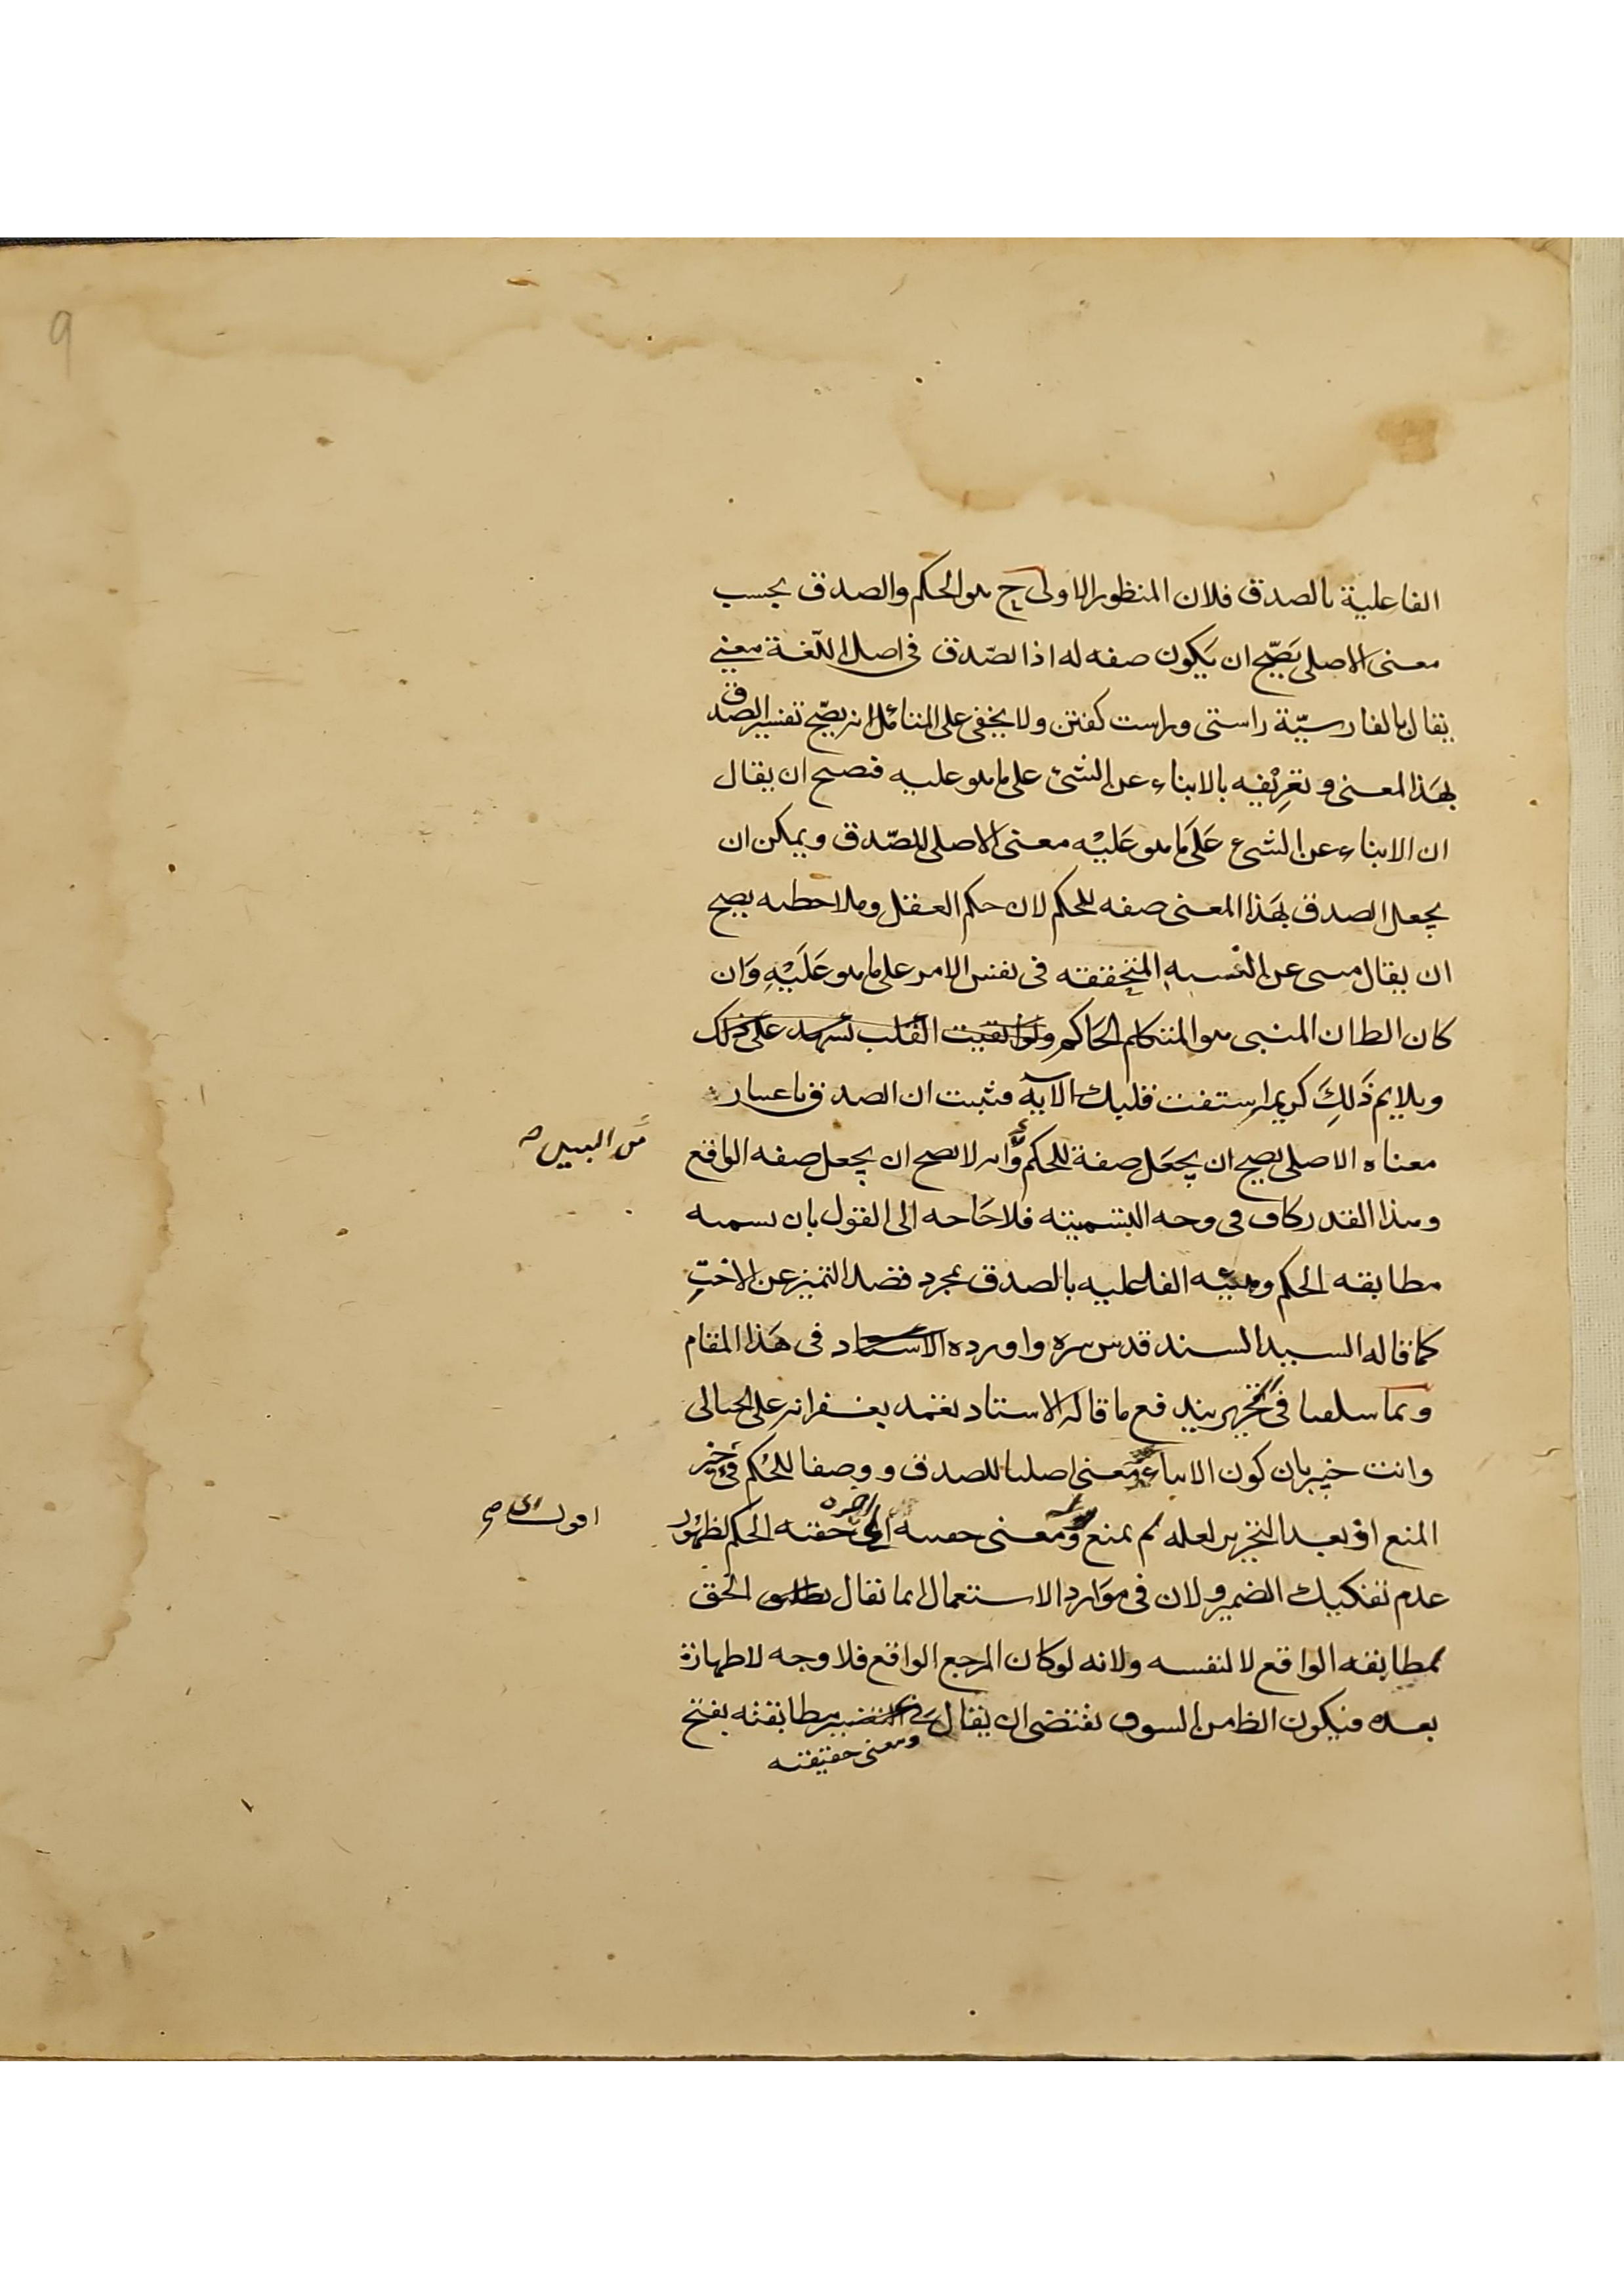 9
الفاعلية بالصدق فلان المنظور الاولى ح هو الحكم والصدق بحسب
معنى الاصلى يَصّح ان يكون صفه له اذا لصّدق فى اصل اللّغة معنى
يقال بالفارسيّة راستى وراست كفتن ولا يخفى على المتأمل انه يصّح تفسير الصدق
بهَذا المعنى و تعرِيْفيه بالانباء عن الشئ على ما هو عليه فنصح ان يقال
ان الانباء عن الشئ عَلى مَا هو عَليْه معنى الاصلى للصّدق ويمكن ان
يجعل الصدق بهَذا المعنى صفه للحكم لان حكم العقل وملاحظه يصح
ان يقال منبى عن النسبه المتحققه فى نفس الامر على ما هو عَلَيْهِ وَان
كان الظان المنبى هو المتكلم الحَاكم ولو القيت القلب تشهد على ذلك
ويلايم ذَلِكَ كريمه استفت قلبك الآيه فثبت ان الصدق باعتبار
معناه الاصلى يصح ان يجعَل صفة للحكم وانه لا يصح ان يجعل صفه الواقع
من البين صح
وهذا القدر كاف فى وجه التسميته فلا حَاجه الى القول بان تسميه
مطابقه الحكم الفاعليه بالصدق بمجرد فصد التميز عن الاخَتِ
كما قاله السيد السند قدس سره واورده الاستاد فى هَذا المقام
وبما سلفنا فى تحريره يندفع ما قاله الاستاد تغمد بغفرانه على الخيالى
وانت خبير بان كون الانباء معنى اصليا للصدق و وصفا للحُكم فى حيّز
المنع اذ بعد التحرير لعله لم يمنع ومعنى حقيه الى اخره حقته الحكم لظهُور
اقول اى صح
عدم تفكيك الضمير ولان فى موَارد الاستعمال انما يقال الحق
لمطابقه الواقع لا لنفسه ولانه لو كان المرجع الواقع فلا وجه لاظهاره
بعده فيكون الظ من السوق يقتضى ان يقال فى التفسير مطابقته بفتح
ومعنى حقيقته